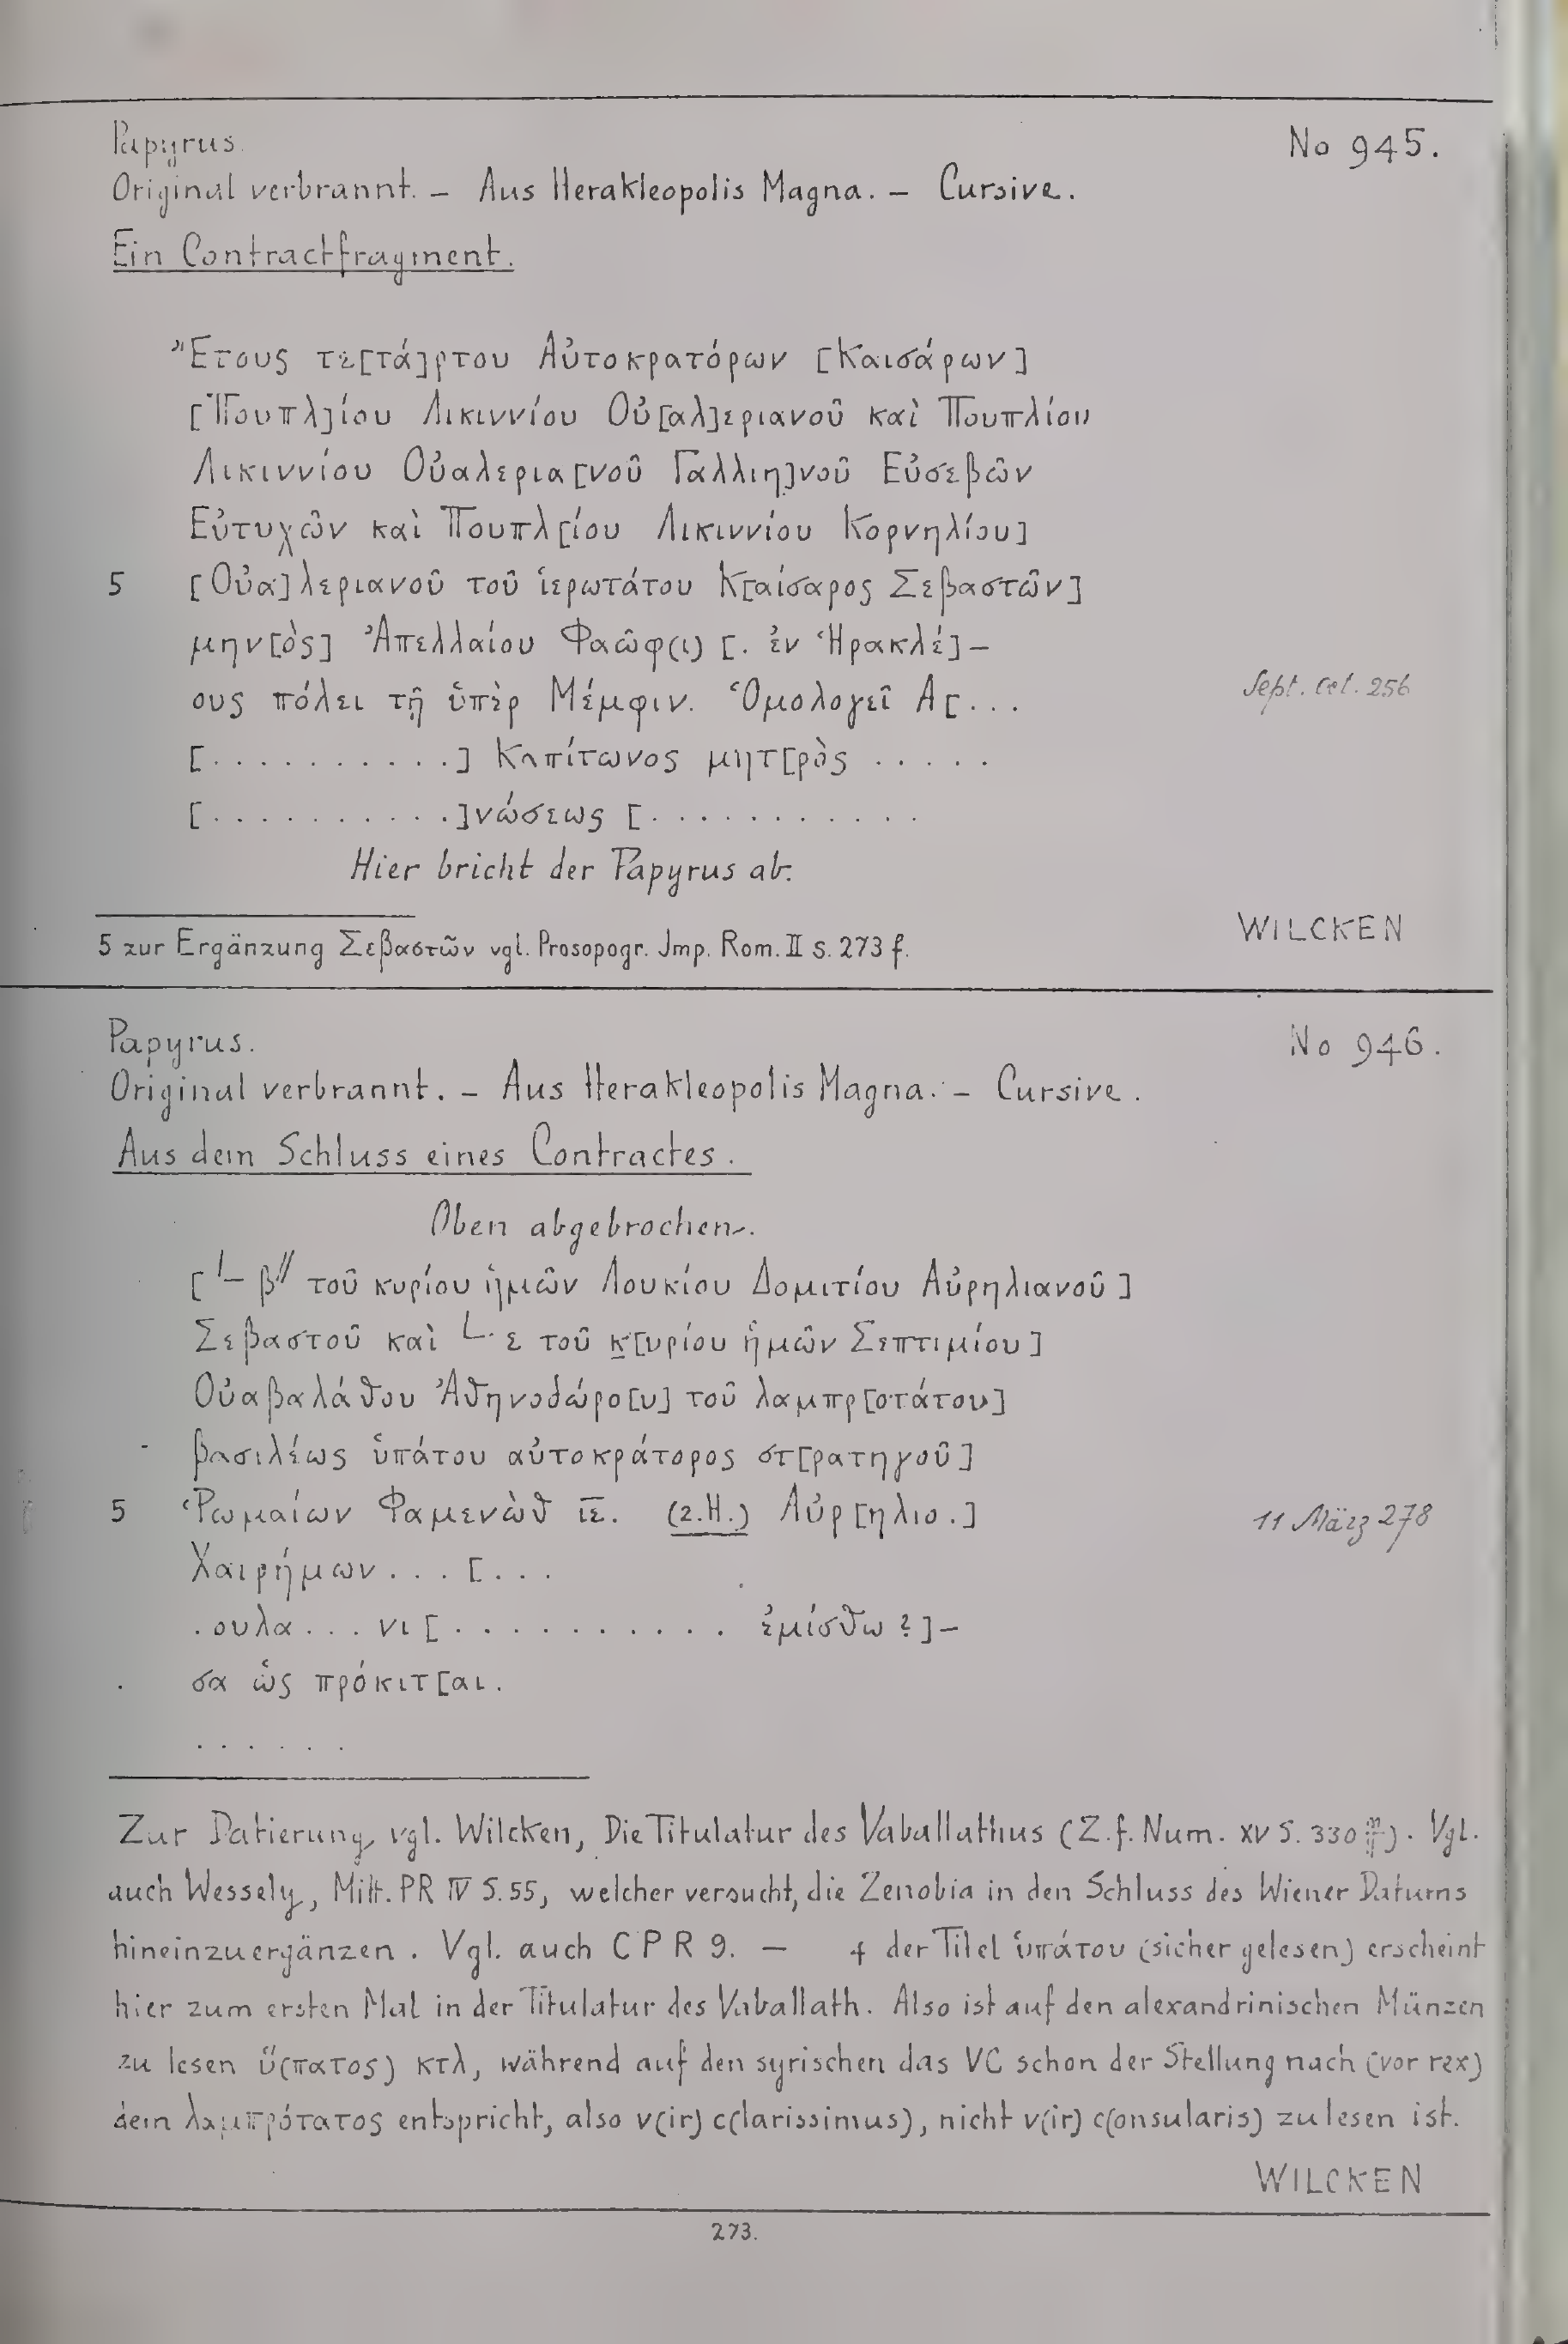 Papyrus. No 945.
Original verbrannt. – Aus Herakleopolis Magna. – Cursive.
Ein Contractfragment.
Ἔτους τε[τά]ρτου Αὐτοκρατόρων [Καισάρων]
[Πουπλ]ίου Λικιννίου Οὐ[αλ]εριανοῦ καὶ Πουπλίου
Λικιννίου Οὐαλερια[νοῦ Γαλλιη]νοῦ Εὐσεβῶν
Εὐτυχῶν καὶ Πουπλ[ίου Λικιννίου Κορνηλίου]
5 [Οὐα]λεριανοῦ τοῦ ἱερωτάτου Κ[αίσαρος Σεβαστῶν]
μην[ὸς] Ἀπελλαίου Φαῶφ(ι) [. ἐν Ἡρακλέ]–
ους πόλει τῇ ὑπὲρ Μέμφιν. Ὁμολογεῖ Α[... Sept. Oct. 256
[..........] Καπίτωνος μητ[ρὸς .....
[..........]νώσεως [...........
Hier bricht der Papyrus ab.
WILCKEN
5 zur Ergänzung Σεβαστῶν vgl. Prosopogr. Jmp. Rom. II S. 273 f.
Papyrus. No 946.
Original verbrannt. – Aus Herakleopolis Magna. – Cursive.
Aus dem Schluss eines Contractes.
Oben abgebrochen.
[ L β// τοῦ κυρίου ἡμῶν Λουκίου Δομιτίου Αὐρηλιανοῦ ]
Σεβαστοῦ καὶ L ε τοῦ κ[υρίου ἡμῶν Σεπτιμίου]
Οὐαβαλάθου Ἀθηνοδώρο[υ] τοῦ λαμπρ[οτάτου]
βασιλέως ὑπάτου αὐτοκράτορος στ[ρατηγοῦ]
5 Ῥωμαίων Φαμενὼθ ιε. (2.H.) Αὐρ[ηλιο.] 11 März 278
Χαιρήμων...[...
.ουλα...νι[.......... ἐμίσθω?]–
σα ὡς πρόκιτ[αι.
......
Zur Datierung vgl. Wilcken, Die Titulatur des Vaballathus (Z.f. Num. XV S. 330 ff). Vgl.
auch Wessely, Mitt. PR IV S. 55, welcher versucht, die Zenobia in den Schluss des Wiener Datums
hineinzuergänzen. Vgl. auch CPR 9. — 4 der Titel ὑπάτου (sicher gelesen) erscheint
hier zum ersten Mal in der Titulatur des Vaballath. Also ist auf den alexandrinischen Münzen
zu lesen ὕ(πατος) κτλ, während auf den syrischen das VC schon der Stellung nach (vor rex)
dem λαμπρότατος entspricht, also v(ir) c(larissimus), nicht v(ir) c(onsularis) zu lesen ist.
WILCKEN
273.